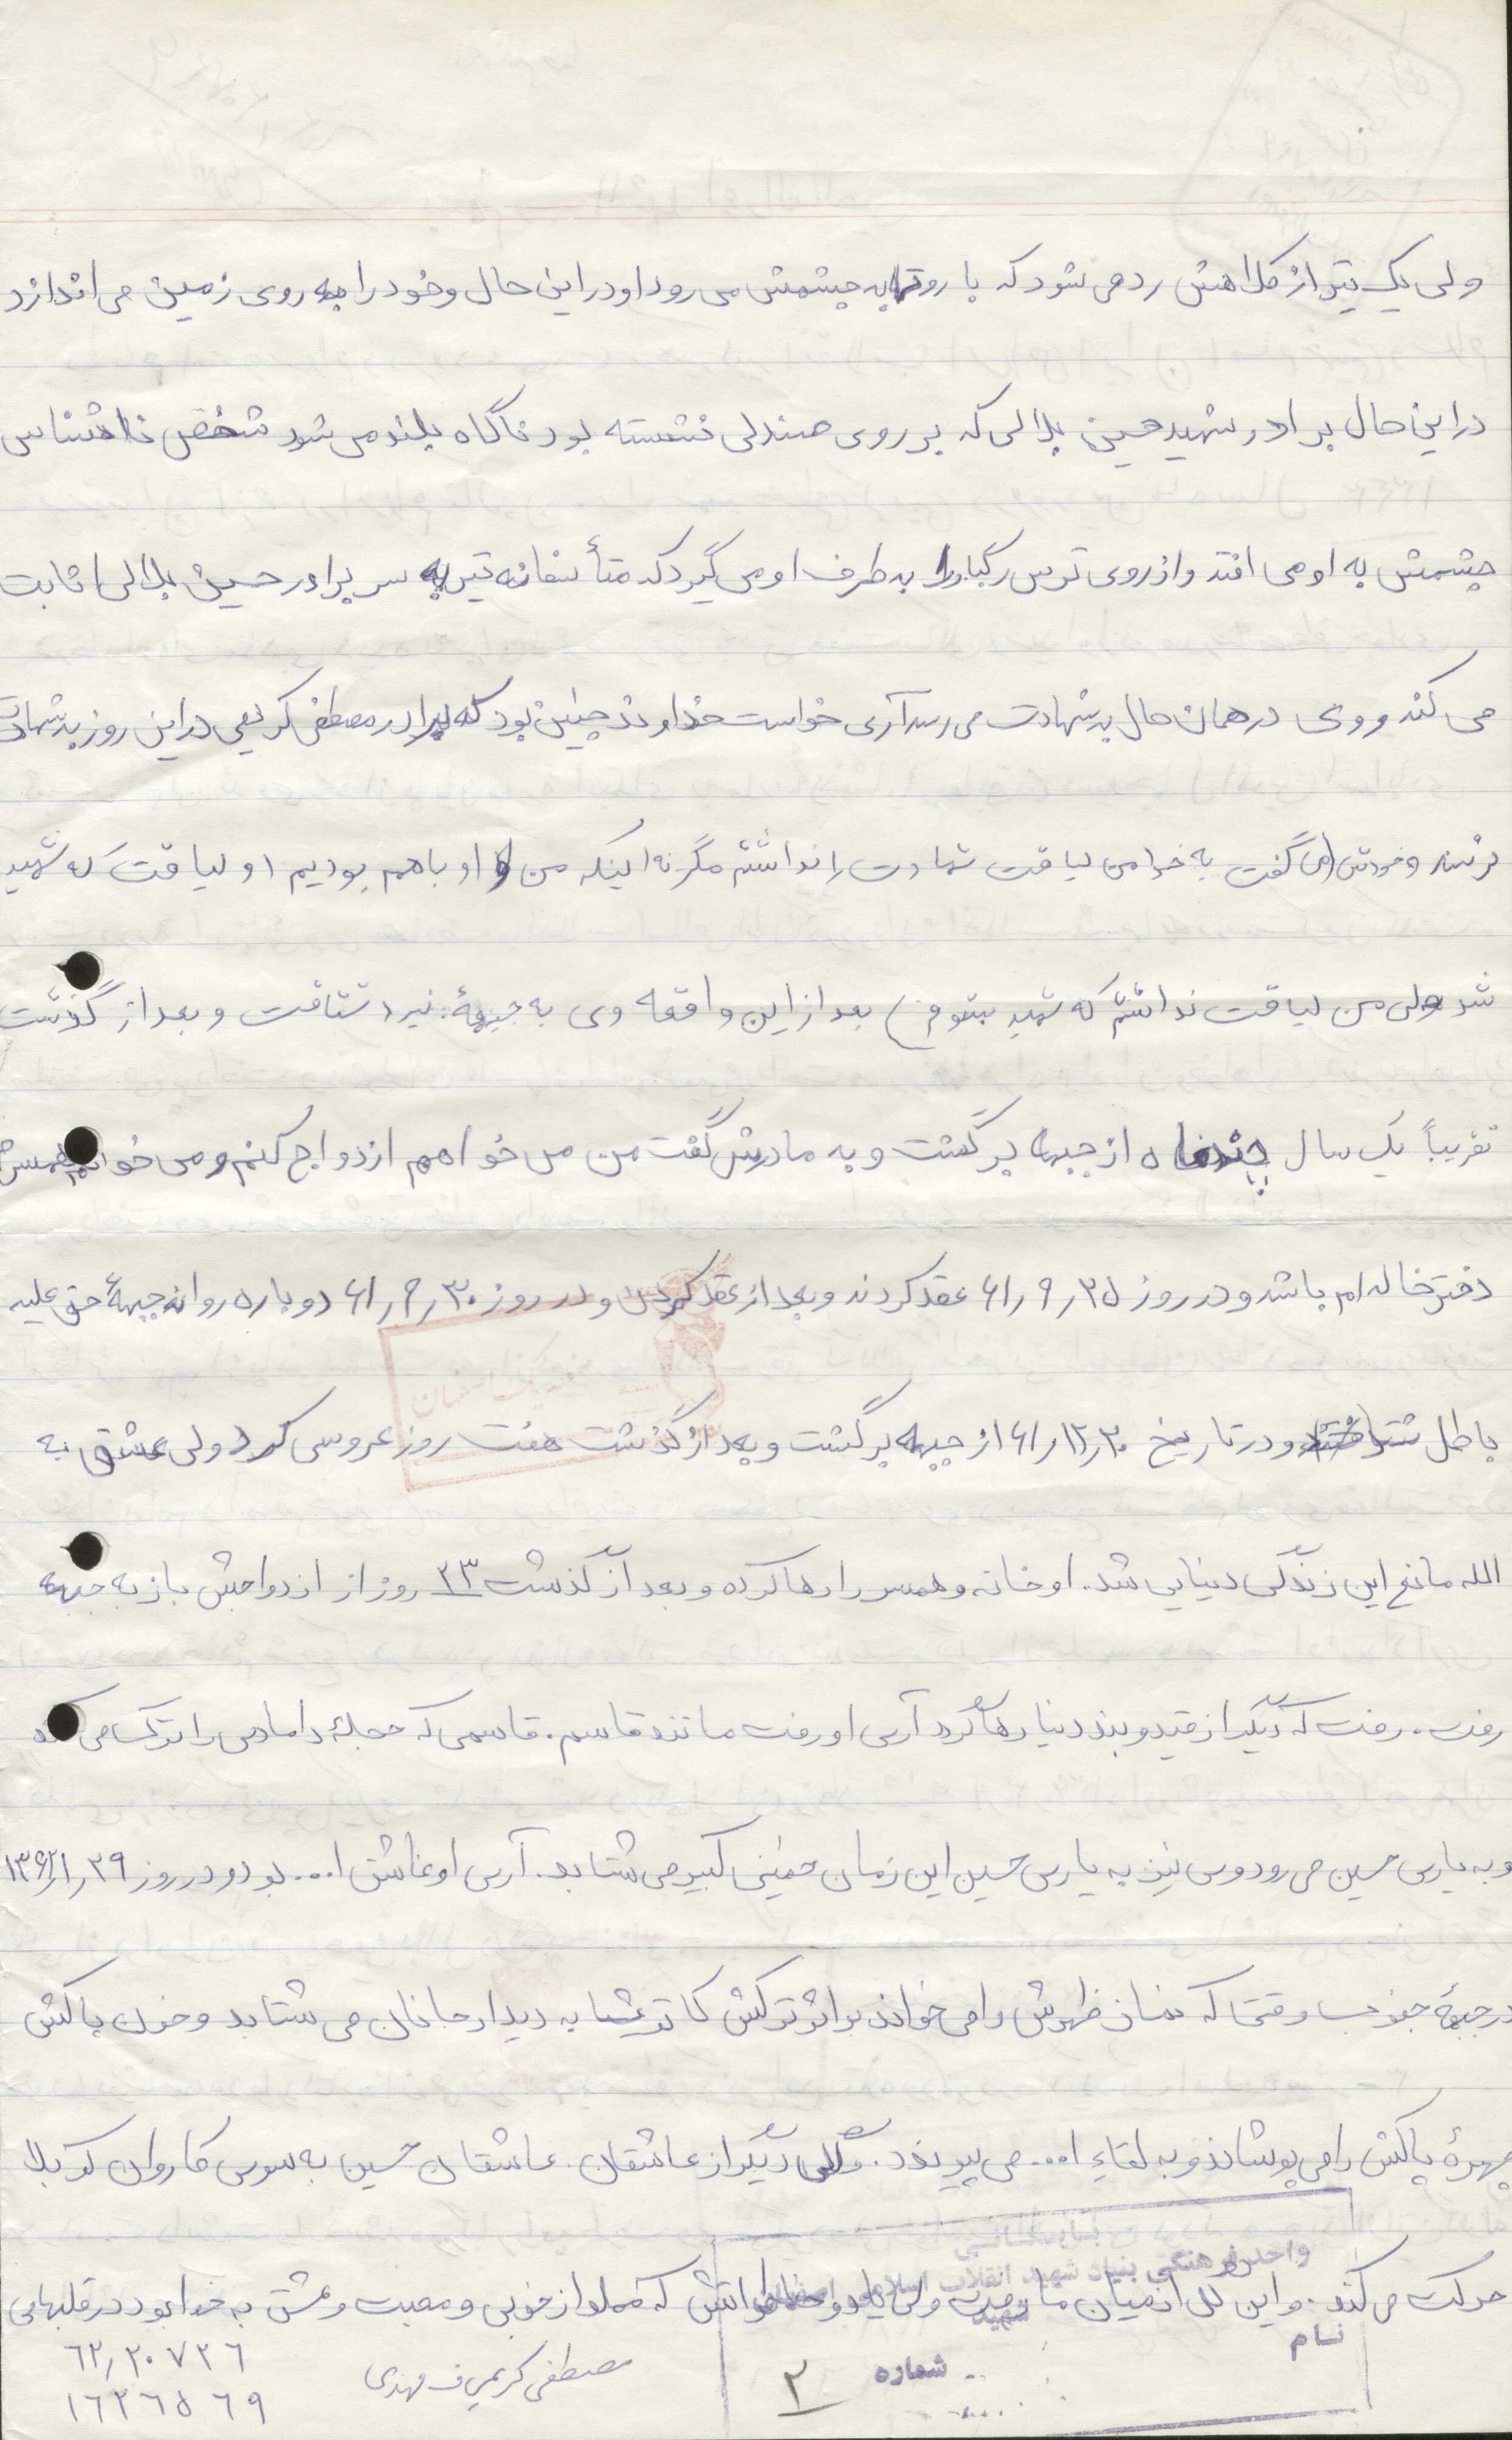 ولی یک تیر از کلاهش رد می شود که باروتها به چشمش می رود او در این حال وخود را به روی زمین می اندازد
در این حال برادر شهید حسین بلالی که بر روی صندلی نشسته بود ناگاه بلند می شود شخص ناشناس
چشمش به او می افتد و از روی ترس رگبار را به طرف او می گیرد که متأسفانه تیر به سر برادر حسین بلالی اثابت
می کند و وی در همان حال به شهادت می رسد آری خواست خداوند چنین بود که برادر مصطفی کریمی در این روز به شهادت
نرسد و خودش (می گفت به خدا من لیاقت شهادت را نداشتم مگر نه اینکه من و او باهم بودیم او لیاقت که شهید
شد ولی من لیاقت نداشتم که شهید بشوم) بعد از این واقعه وی به جبههٔ نبرد شتافت و بعد از گذشت
تقریباً یک سال چند ماه از جبهه برگشت و به مادرش گفت من می خواهم ازدواج کنم و می خواهم همسرم
دختر خاله ام باشد و در روز ۲۵ر۹ر۶۱ عقد کردند و بعد از عقد کردن و در روز ۳۰ر۹ر۶۱ دوباره روانه جبههٔ حق علیه
باطل و در تاریخ ۲۰ر۱۲ر۶۱ از جبهه برگشت و بعد از گذشت هفت روز عروسی کرد ولی عشق به
الله مانع این زندگی دنیایی شد. او خانه و همسر را رها کرده و بعد از گذشت ۲۳ روز از ازدواجش باز به جبهه
رفت. رفت که دیگر از قید و بند دنیا رها گردد آری او رفت مانند قاسم. قاسمی که حجلهٔ دامادی را ترک می کند
و به یاری حسین می رود وی نیز به یاری حسین این زمان خمینی کبیر می شتابد. آری او عاشق ا... بود و در روز ۲۹ر۱ر۱۳۶۲
در جبههٔ جنوب وقتی که نماز ظهرش را می خواند بر اثر ترکش کاتیوشا به دیدار جانان می شتابد و خون پاکش
چهرهٔ پاکش را می پوشاند و به لقاءِ ا... می پیوندد. گلی دیگر از عاشقان. عاشقان حسین به سوی کاروان کربلا
حرکت می کند. و این گل از میان ما رفت ولی یاد و خاطراتش که مملو از خوبی و محبت و عشق به خدا بود در قلبهای
واحد فرهنگی بنیاد شهید انقلاب اسلامی اصفهان
شهید
نام
شماره
۲
مصطفی کریمی ف مهدی
۶۲ر۲۰۷۲۶
۱۶۲۶۵۶۹